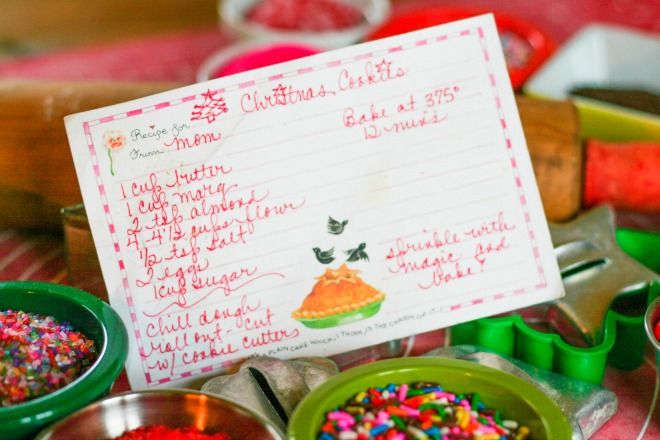 Christmas Cookies
Recipe for
From Mom
Bake at 375°
12 mins
1 cup butter
1 cup marg
2 tsp almond
4-4½ cups flour
½ tsp salt
2 eggs
1 cup sugar
chill dough
roll out - cut
w/ cookie cutters
sprinkle with
magic and
bake!
PLAIN CAKE WHICH, I THINK, IS THE CHARM OF IT!